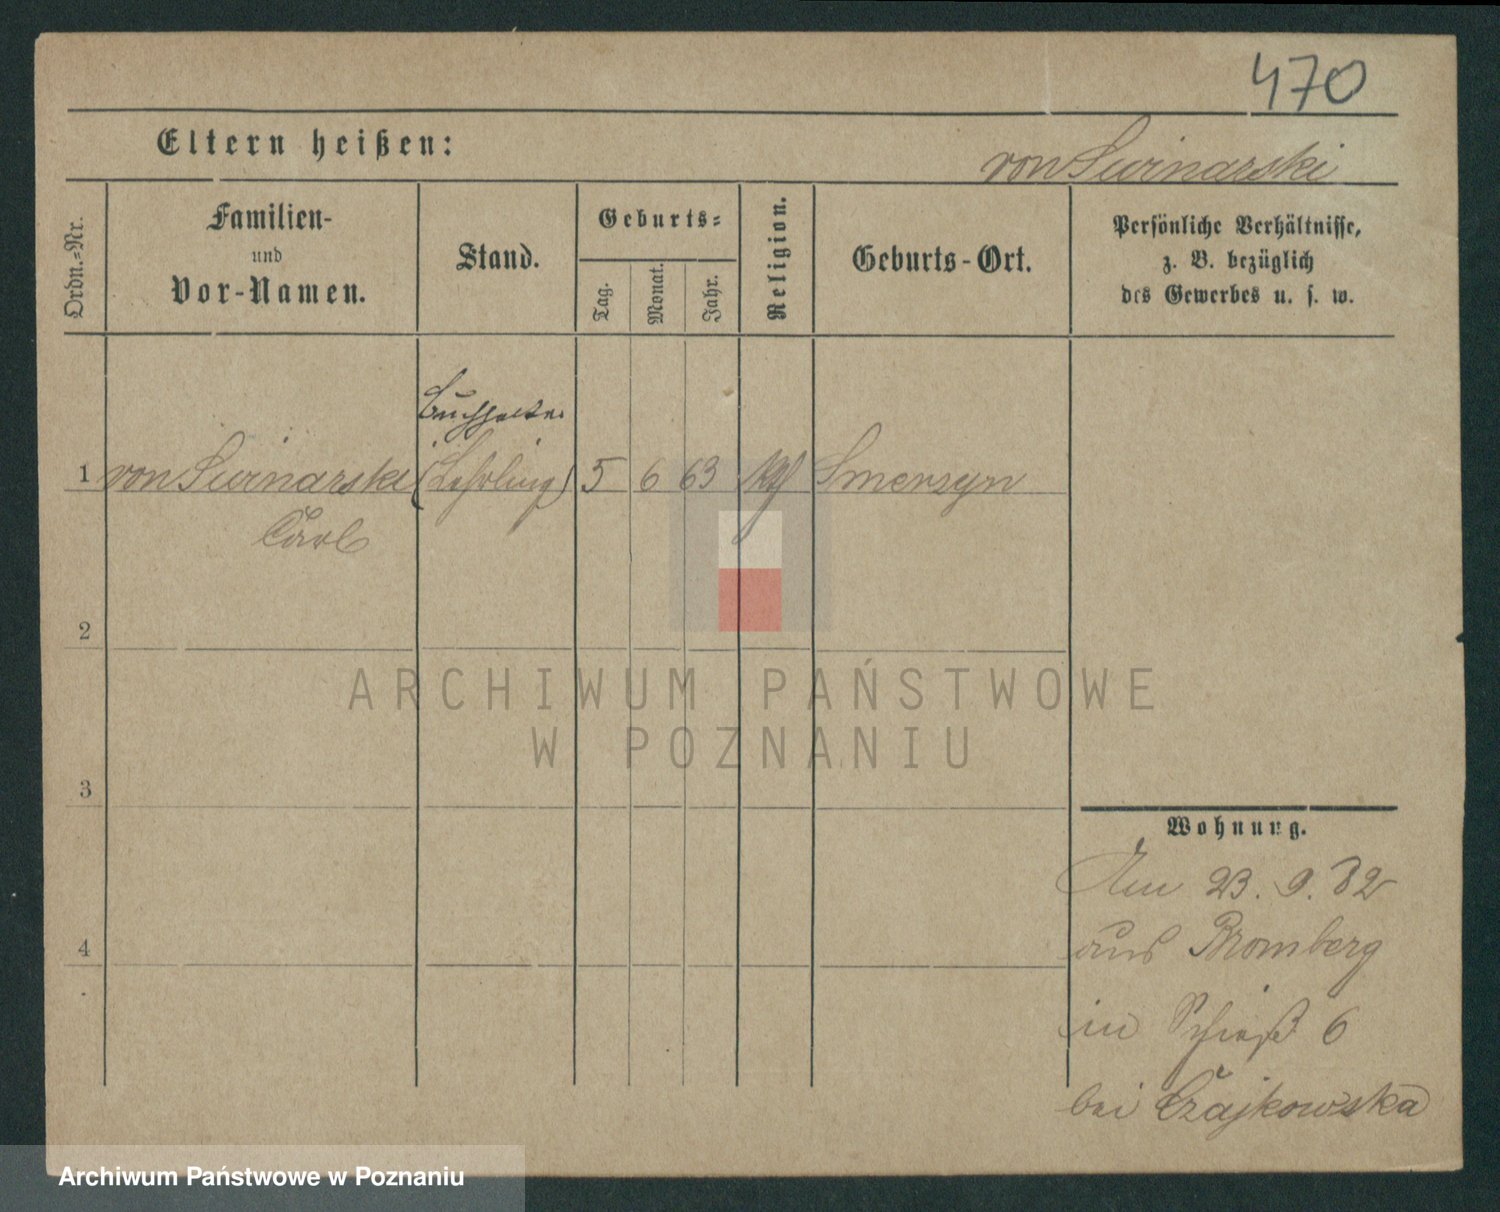 470
Eltern heißen:
von Swinarski
Ordn.=Nr.
Familien-
und
Vor-Namen.
Stand.
Geburts=
Tag.
Monat.
Jahr.
Religion.
Geburts-Ort.
Persönliche Verhältnisse,
z. B. bezüglich
des Gewerbes u. s. w.
1 von Swinarski (Lehrling) 5 6 63 kth Smerzyn
Carl
2
3
4
Wohnung.
Am 23. 9. 82
aus Bromberg
in Schieß 6
bei Czajkowska
ARCHIWUM PAŃSTWOWE
W POZNANIU
Archiwum Państwowe w Poznaniu